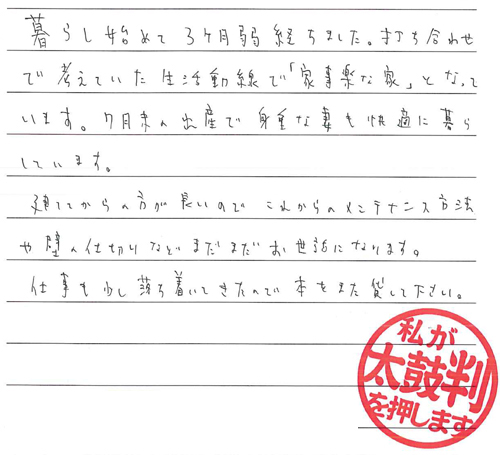 暮らし始めて3ケ月弱経ちました。打ち合わせ
で考えていた生活動線で「家事楽な家」となって
います。7月末の出産で身重な妻も快適に暮ら
しています。
建ててからの方が長いのでこれからのメンテナンス方法
や壁の仕切りなどまだまだお世話になります。
仕事も少し落ち着いてきたので本をまた貸して下さい。
私が
太鼓判
を押します